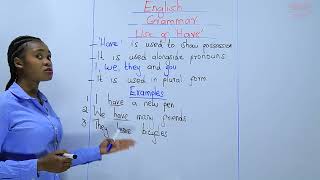 English
Grammar
Use of 'Have'
- 'Have' is used to show possession
- It is used alongside pronouns
I, we, they and you
- It is used in plural form
Examples
1. I have a new pen
2. We have many friends
3. They have bicycles